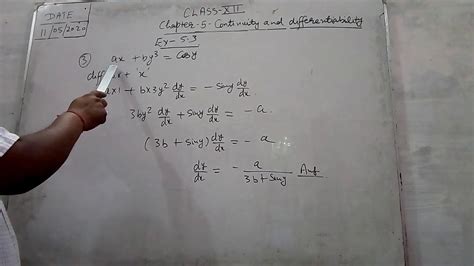 CLASS-XII
DATE:
11/05/2020
Chapter-5-Continuity and differentiability
Ex-5.3
③ ax + by³ = Cosy
diff x
ax1 + bx3y² dy/dx = -Siny dy/dx
3by² dy/dx + Siny dy/dx = -a
(3b + Siny) dy/dx = -a
dy/dx = - a/(3b+Siny) Ans